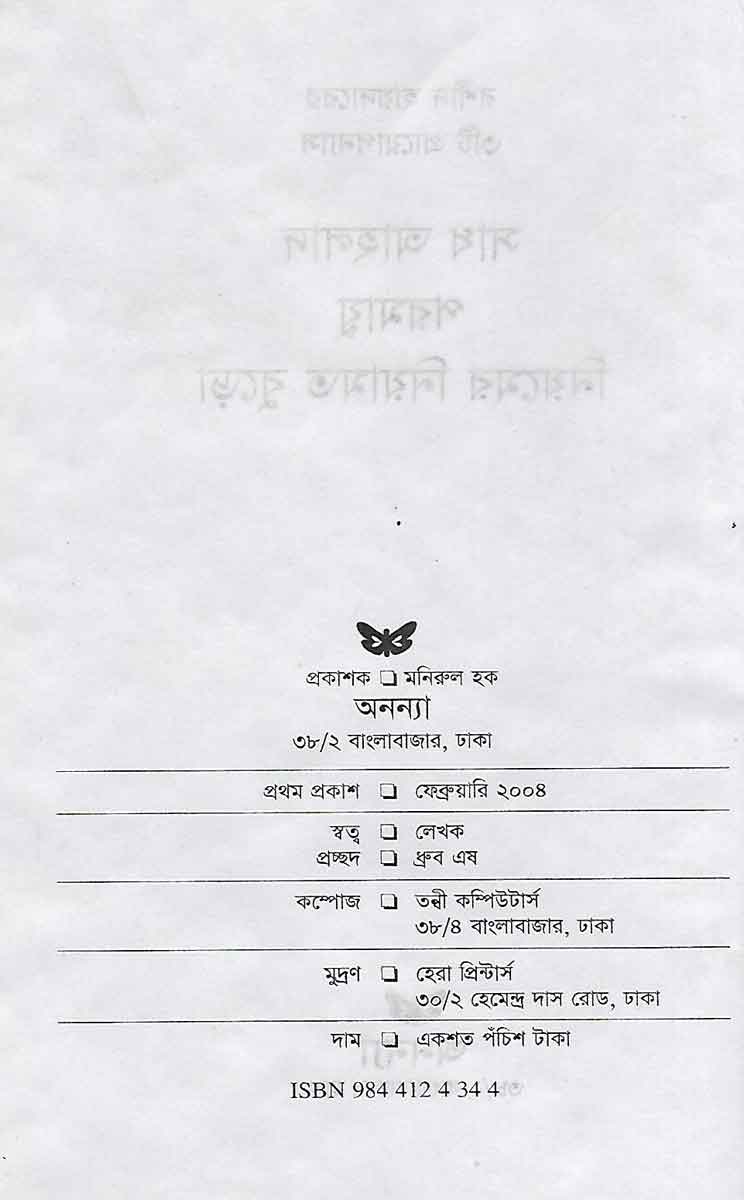 প্রকাশক ❏ মনিরুল হক
অনন্যা
৩৮/২ বাংলাবাজার, ঢাকা
প্রথম প্রকাশ ❏ ফেব্রুয়ারি ২০০৪
স্বত্ব ❏ লেখক
প্রচ্ছদ ❏ ধ্রুব এষ
কম্পোজ ❏ তন্বী কম্পিউটার্স
৩৮/৪ বাংলাবাজার, ঢাকা
মুদ্রণ ❏ হেরা প্রিন্টার্স
৩০/২ হেমেন্দ্র দাস রোড, ঢাকা
দাম ❏ একশত পঁচিশ টাকা
ISBN 984 412 4 34 4